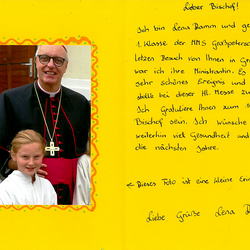 Lieber Bischof!
Ich bin Lena Damm und ge
1. Klasse der NMS Großpetersd
Letzen Besuch von Ihnen in Gr
war ich ihre Ministrantin. Es
sehr schönes Ereignis und
dabei bei dieser Hl. Messe zu
Ich Gratuliere Ihnen zum
Bischof sein. Ich wünsche
weiterhin viel Gesundheit und
die nächsten Jahre.
Dieses Foto ist eine kleine Erin
Liebe Grüße Lena D